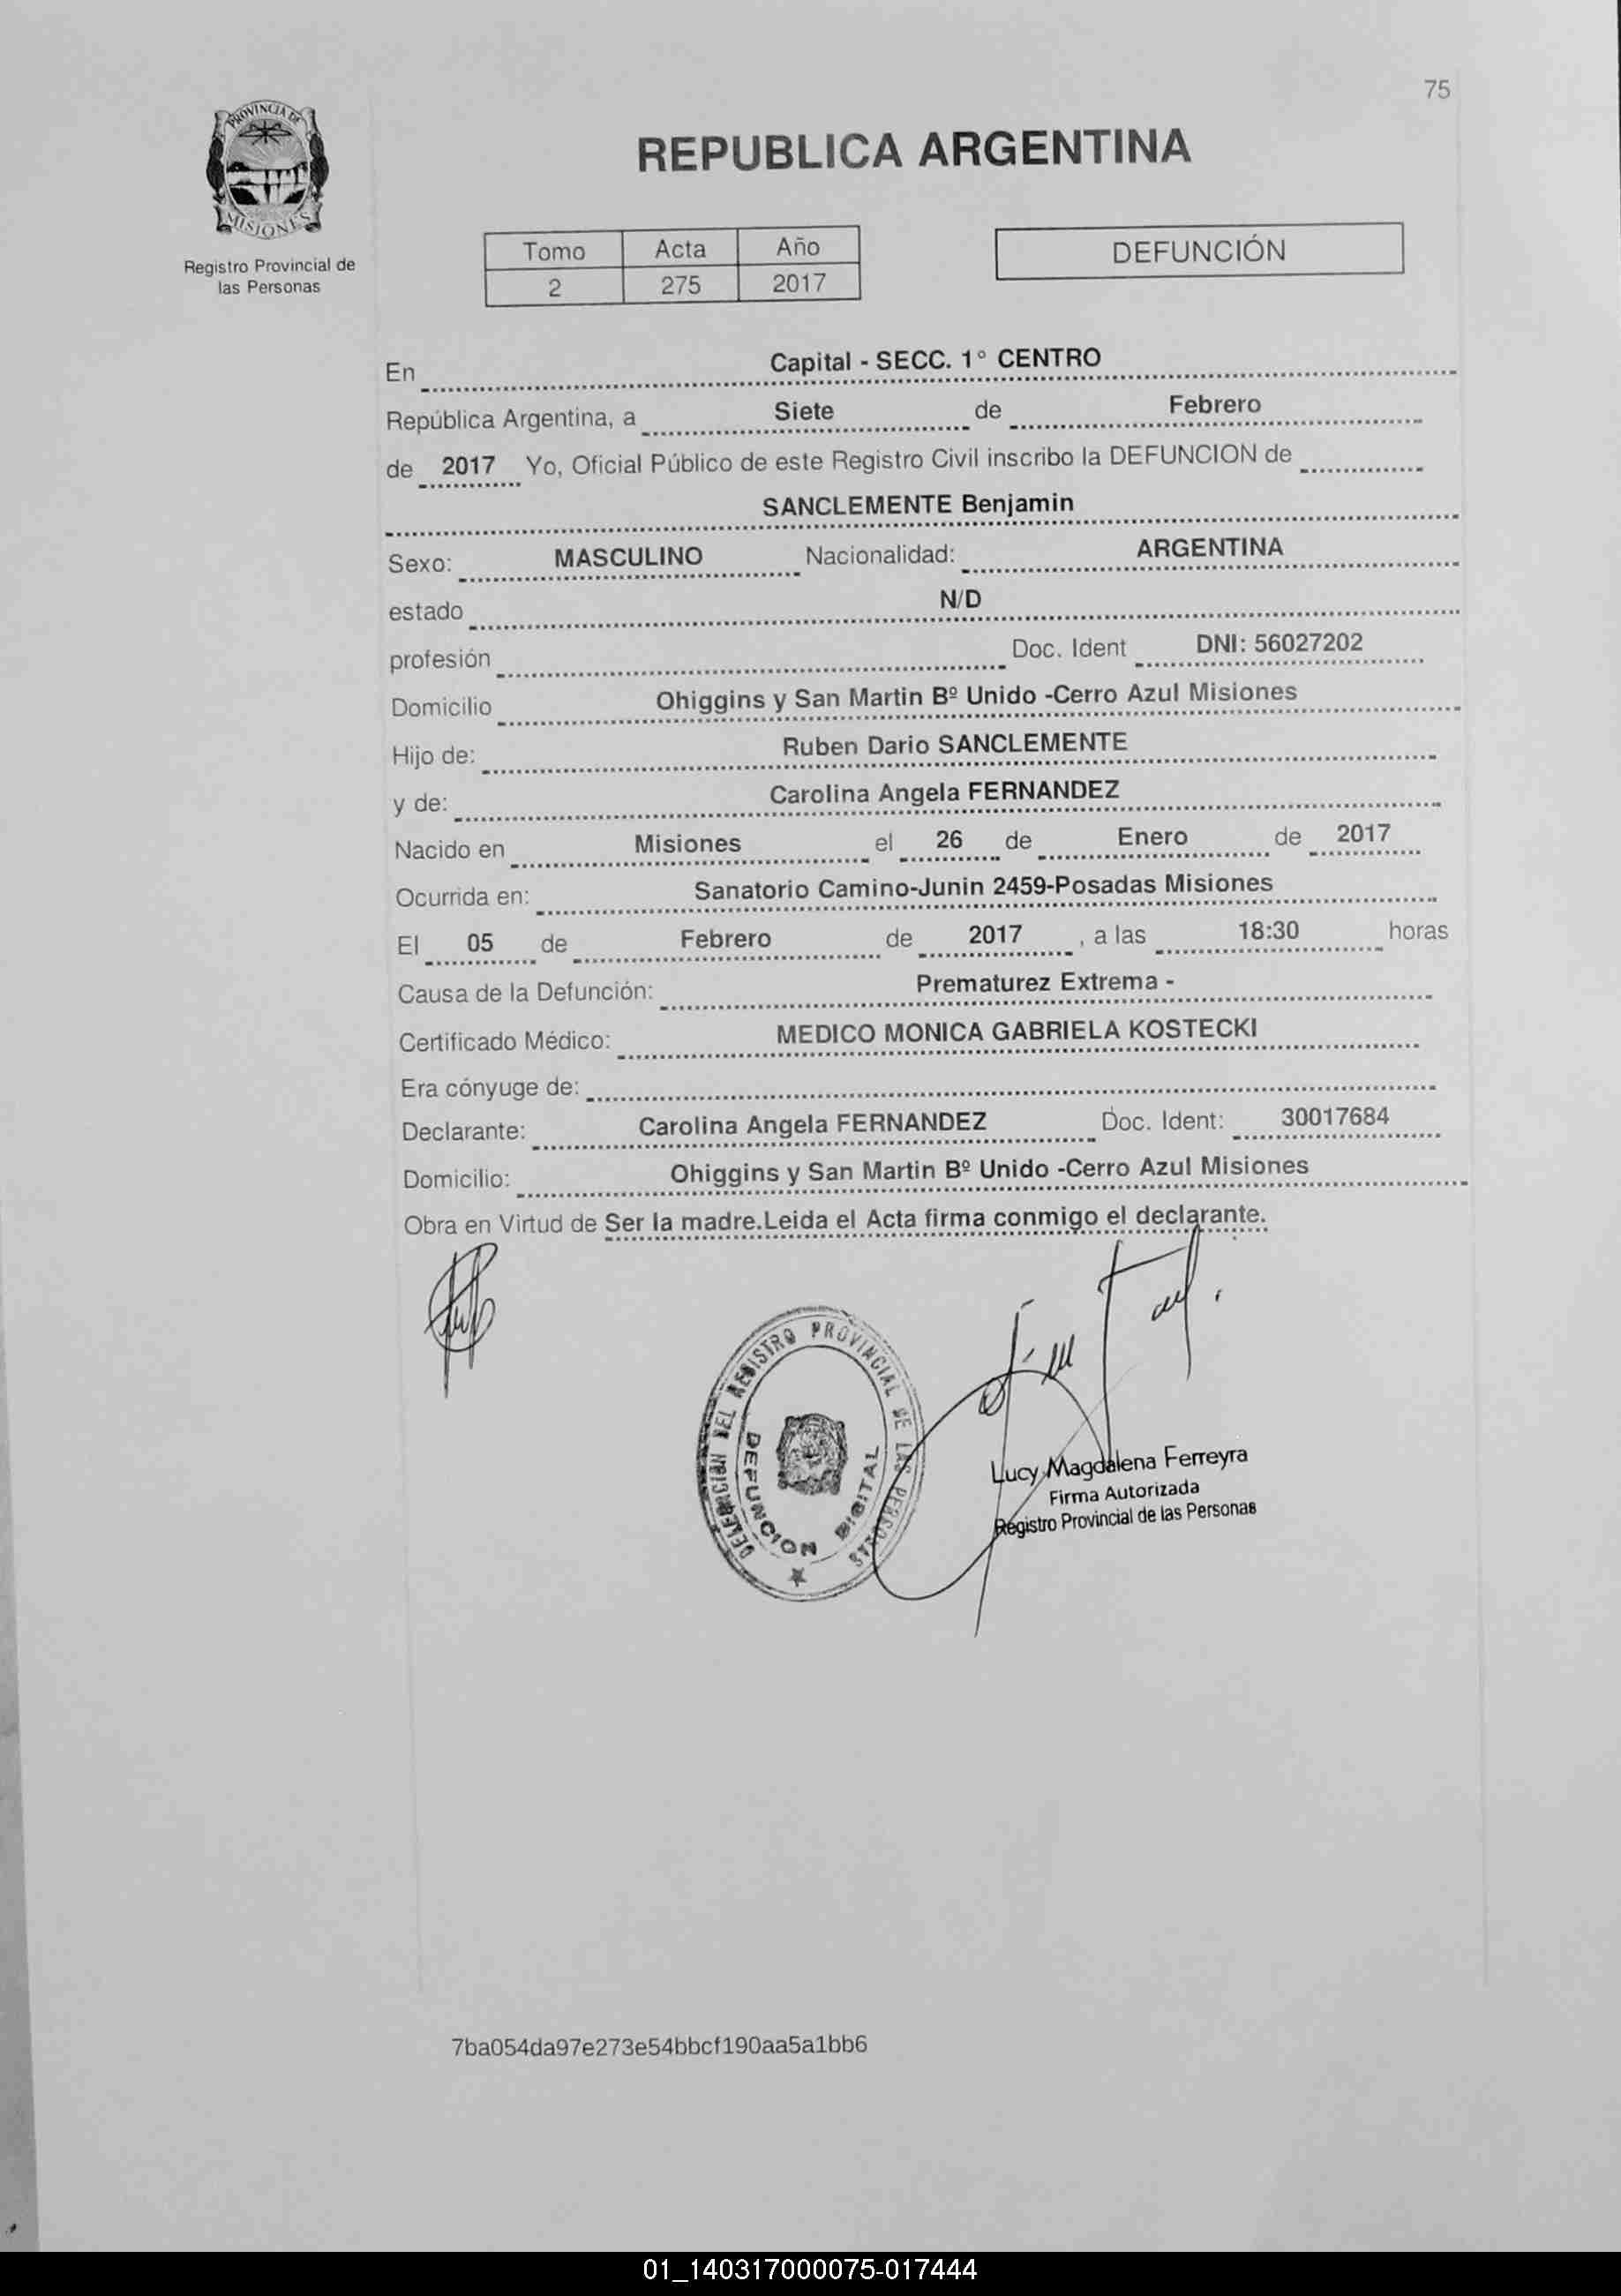 75
PROVINCIA DE
MISIONES
Registro Provincial de
las Personas
REPUBLICA ARGENTINA
Tomo Acta Año
2 275 2017
DEFUNCIÓN
En Capital - SECC. 1° CENTRO
República Argentina, a Siete de Febrero
de 2017 Yo, Oficial Público de este Registro Civil inscribo la DEFUNCION de
SANCLEMENTE Benjamin
Sexo: MASCULINO Nacionalidad: ARGENTINA
estado N/D
profesión Doc. Ident DNI: 56027202
Domicilio Ohiggins y San Martin Bº Unido -Cerro Azul Misiones
Hijo de: Ruben Dario SANCLEMENTE
y de: Carolina Angela FERNANDEZ
Nacido en Misiones el 26 de Enero de 2017
Ocurrida en: Sanatorio Camino-Junin 2459-Posadas Misiones
El 05 de Febrero de 2017 , a las 18:30 horas
Causa de la Defunción: Prematurez Extrema -
Certificado Médico: MEDICO MONICA GABRIELA KOSTECKI
Era cónyuge de:
Declarante: Carolina Angela FERNANDEZ Doc. Ident: 30017684
Domicilio: Ohiggins y San Martin Bº Unido -Cerro Azul Misiones
Obra en Virtud de Ser la madre.Leida el Acta firma conmigo el declarante.
DELEGACION DEL REGISTRO PROVINCIAL DE LAS PERSONAS
DEFUNCION DIGITAL
Lucy Magdalena Ferreyra
Firma Autorizada
Registro Provincial de las Personas
7ba054da97e273e54bbcf190aa5a1bb6
01_140317000075-017444